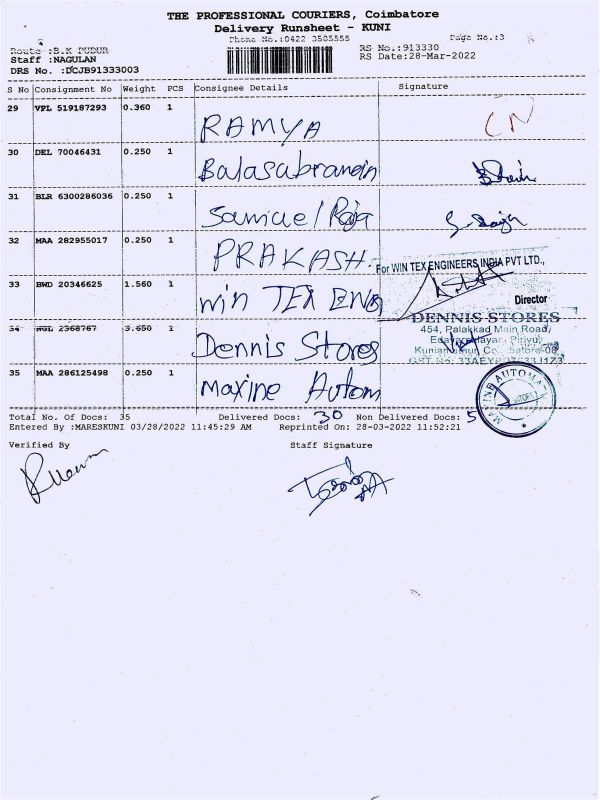 THE PROFESSIONAL COURIERS, Coimbatore
Delivery Runsheet - KUNI
Phone No.:0422 3505555 Page No.:3
Route :B.K PUDUR RS No.:913330
Staff :NAGULAN RS Date:28-Mar-2022
DRS No. :DCJB91333003
S No Consignment No Weight PCS Consignee Details Signature
29 VPL 519187293 0.360 1
RAMYA CN
30 DEL 70046431 0.250 1
31 BLR 6300286036 0.250 1
Samuel Raja
32 MAA 282955017 0.250 1
PRAKASH.
For WIN TEX ENGINEERS INDIA PVT LTD.,
33 BWD 20346625 1.560 1
win TEX
Director
DENNIS STORES
34 NGL 2368767 3.650 1
454, Palakkad Main Road,
Dennis Stores
35 MAA 286125498 0.250 1
Maxine Autom
Total No. Of Docs: 35 Delivered Docs: 30 Non Delivered Docs: 5
Entered By :MARESKUNI 03/28/2022 11:45:29 AM Reprinted On: 28-03-2022 11:52:21
Verified By Staff Signature